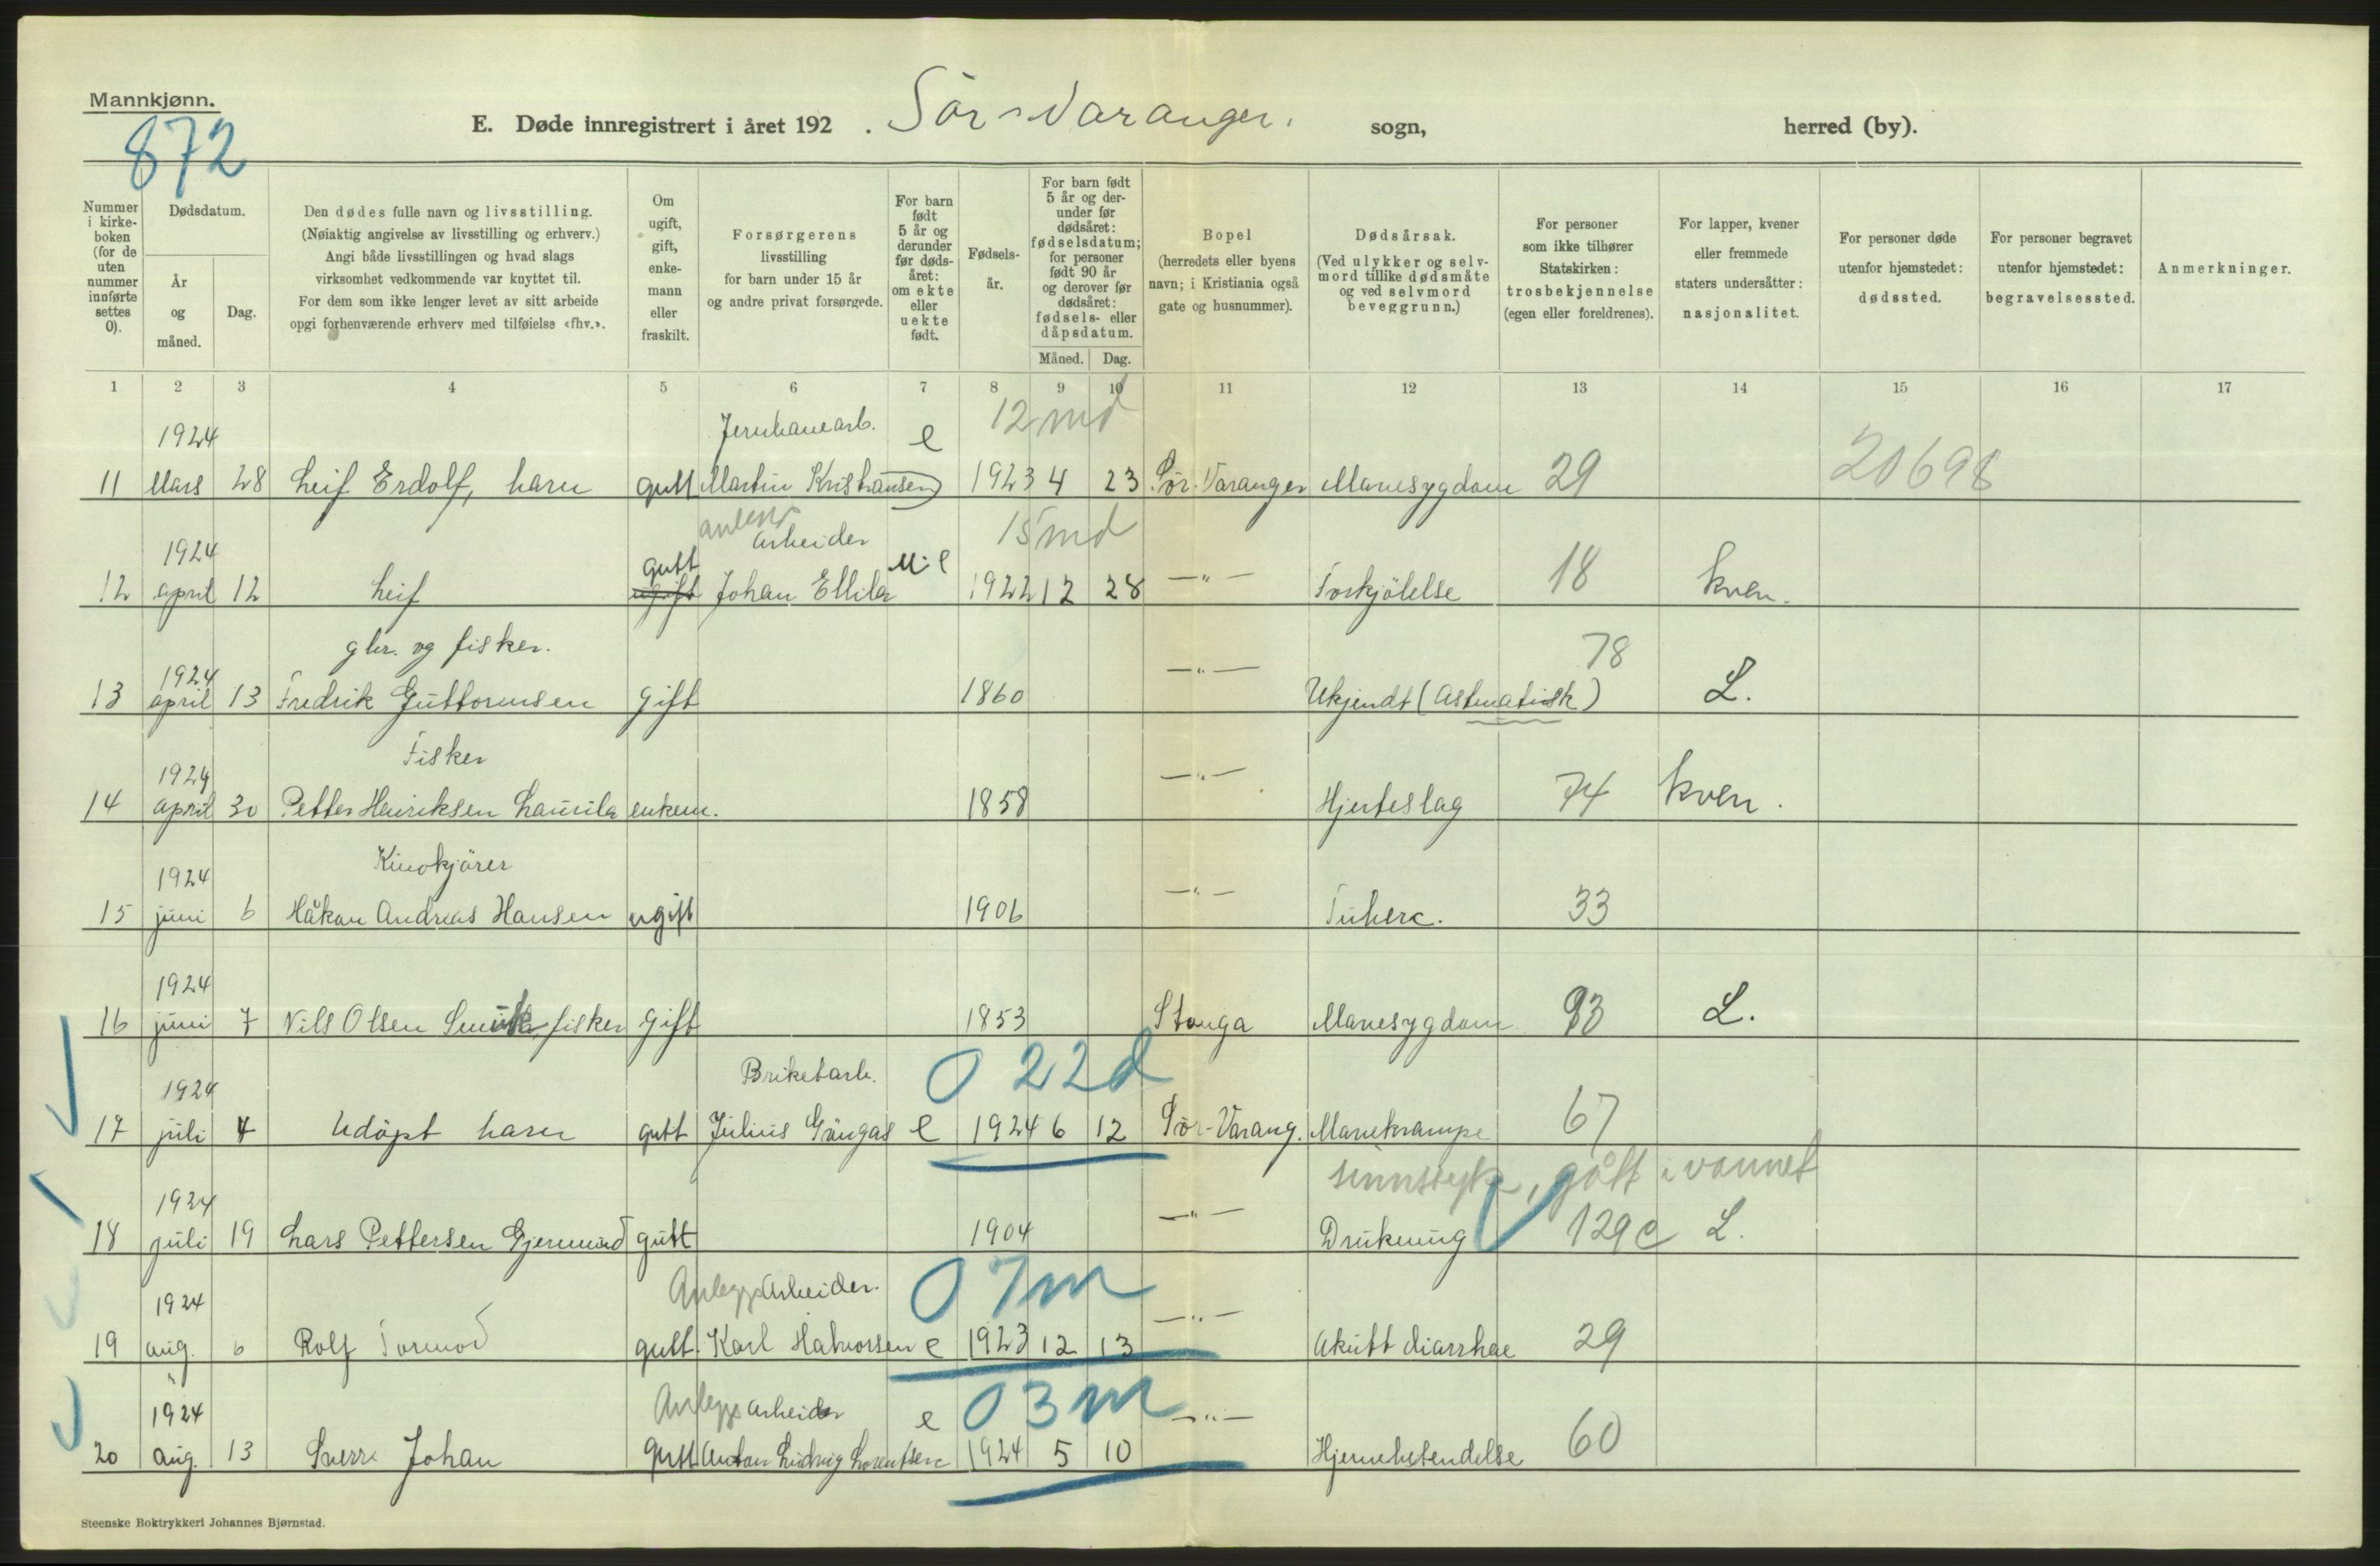 Mannkjønn.
872
E. Døde innregistrert i året 192 . Sör-Varanger. sogn, herred (by).
Nummer i kirkeboken (for de uten nummer innførte settes 0).
Dødsdatum.
År og måned.
Dag.
Den dødes fulle navn og livsstilling.
(Nøiaktig angivelse av livsstilling og erhverv.)
Angi både livsstillingen og hvad slags
virksomhet vedkommende var knyttet til.
For dem som ikke lenger levet av sitt arbeide
opgi forhenværende erhverv med tilføielse «fhv.».
Om ugift, gift, enkemann eller fraskilt.
Forsørgerens
livsstilling
for barn under 15 år
og andre privat forsørgede.
For barn født 5 år og derunder før dødsåret: om ekte eller uekte født.
Fødselsår.
For barn født 5 år og derunder før dødsåret: fødselsdatum; for personer født 90 år og derover før dødsåret: fødsels- eller dåpsdatum.
Måned. Dag.
Bopel
(herredets eller byens
navn; i Kristiania også
gate og husnummer).
Dødsårsak.
(Ved ulykker og selvmord tillike dødsmåte
og ved selvmord
beveggrunn.)
For personer
som ikke tilhører
Statskirken:
trosbekjennelse
(egen eller foreldrenes).
For lapper, kvener
eller fremmede
staters undersåtter:
nasjonalitet.
For personer døde
utenfor hjemstedet:
dødssted.
For personer begravet
utenfor hjemstedet:
begravelsessted.
Anmerkninger.
1 2 3 4 5 6 7 8 9 10 11 12 13 14 15 16 17
1924 Jernbanearb. e 12 md
11 Mars 28 Leif Erdolf, barn gutt Martin Kristiansen 1923 4 23 Sör-Varanger Mavesygdom 29 20698
anleggs
1924 gutt arbeider 15 md
12 april 12 Leif ugift Johan Ellila e 1922 12 28 —"— Forkjölelse 18 kven.
1924 gbr. og fisker. 78
13 april 13 Fredrik Guttormsen gift 1860 —"— Ukjendt (astmatisk) L.
1924 Fisker
14 april 30 Petter Henriksen Laurila enkem. 1858 —"— Hjerteslag 74 kven.
1924 Kinokjörer
15 juni 6 Håkon Andreas Hansen ugift 1906 —"— Tuberc. 33
1924
16 juni 7 Nils Olsen fisker gift 1853 Stonga Mavesygdom 93 L.
1924 Briketarb. 0 22d
17 juli 4 Udöpt barn gutt Julius e 1924 6 12 Sör-Varang. Mavekrampe 67
1924 sinnssyk, gått i vannet
18 juli 19 Lars Pettersen gutt 1904 —"— Drukning 129c L.
1924 Anleggsarbeider. 0 7m
19 aug. 6 Rolf Tormod gutt Karl Halvorsen e 1923 12 13 —"— Akutt diarrhae 29
1924 Anleggsarbeider e 0 3m
20 aug. 13 Sverre Johan gutt Anton Ludvig Lorentsen 1924 5 10 —"— Hjernebetendelse 60
Steenske Boktrykkeri Johannes Bjørnstad.